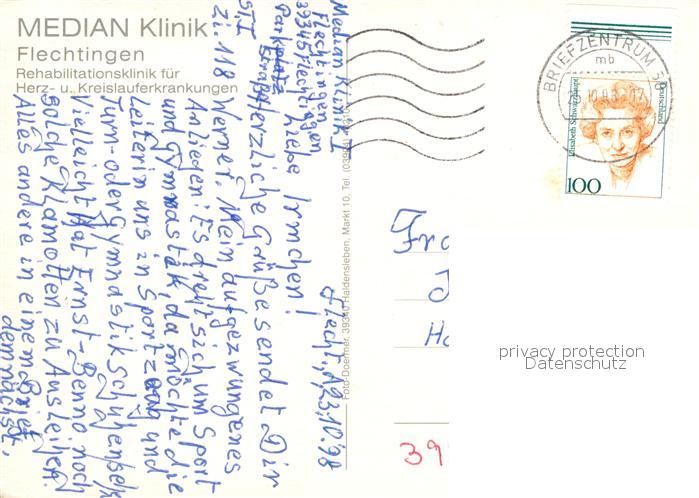 MEDIAN Klinik
Flechtingen
Rehabilitationsklinik für
Herz- u. Kreislauferkrankungen
Median Klinik I
Flechtingen
39345 Flechtingen
Parkstraße
ST. I
Zi. 118
Flecht., 23.10.98
Liebe Irmchen!
Herzliche Grüße sendet Dir
Werner. Mein aufgezwungenes
Anliegen: Es dreht sich um Sport
und Gymnastik, da möchte die
Leiterin uns in Sportzeug und
Turn- oder Gymnastikschuhen sehen.
Vielleicht hat Ernst-Benno noch
solche Klamotten zu Ausleihen.
Alles andere in einem Brief
demnächst.
Foto-Doermer, 39340 Haldensleben, Markt 10, Tel.
BRIEFZENTRUM 39
mb
Elisabeth Schwarzhaupt
Deutschland
100
Fra
Ha
39
privacy protection
Datenschutz